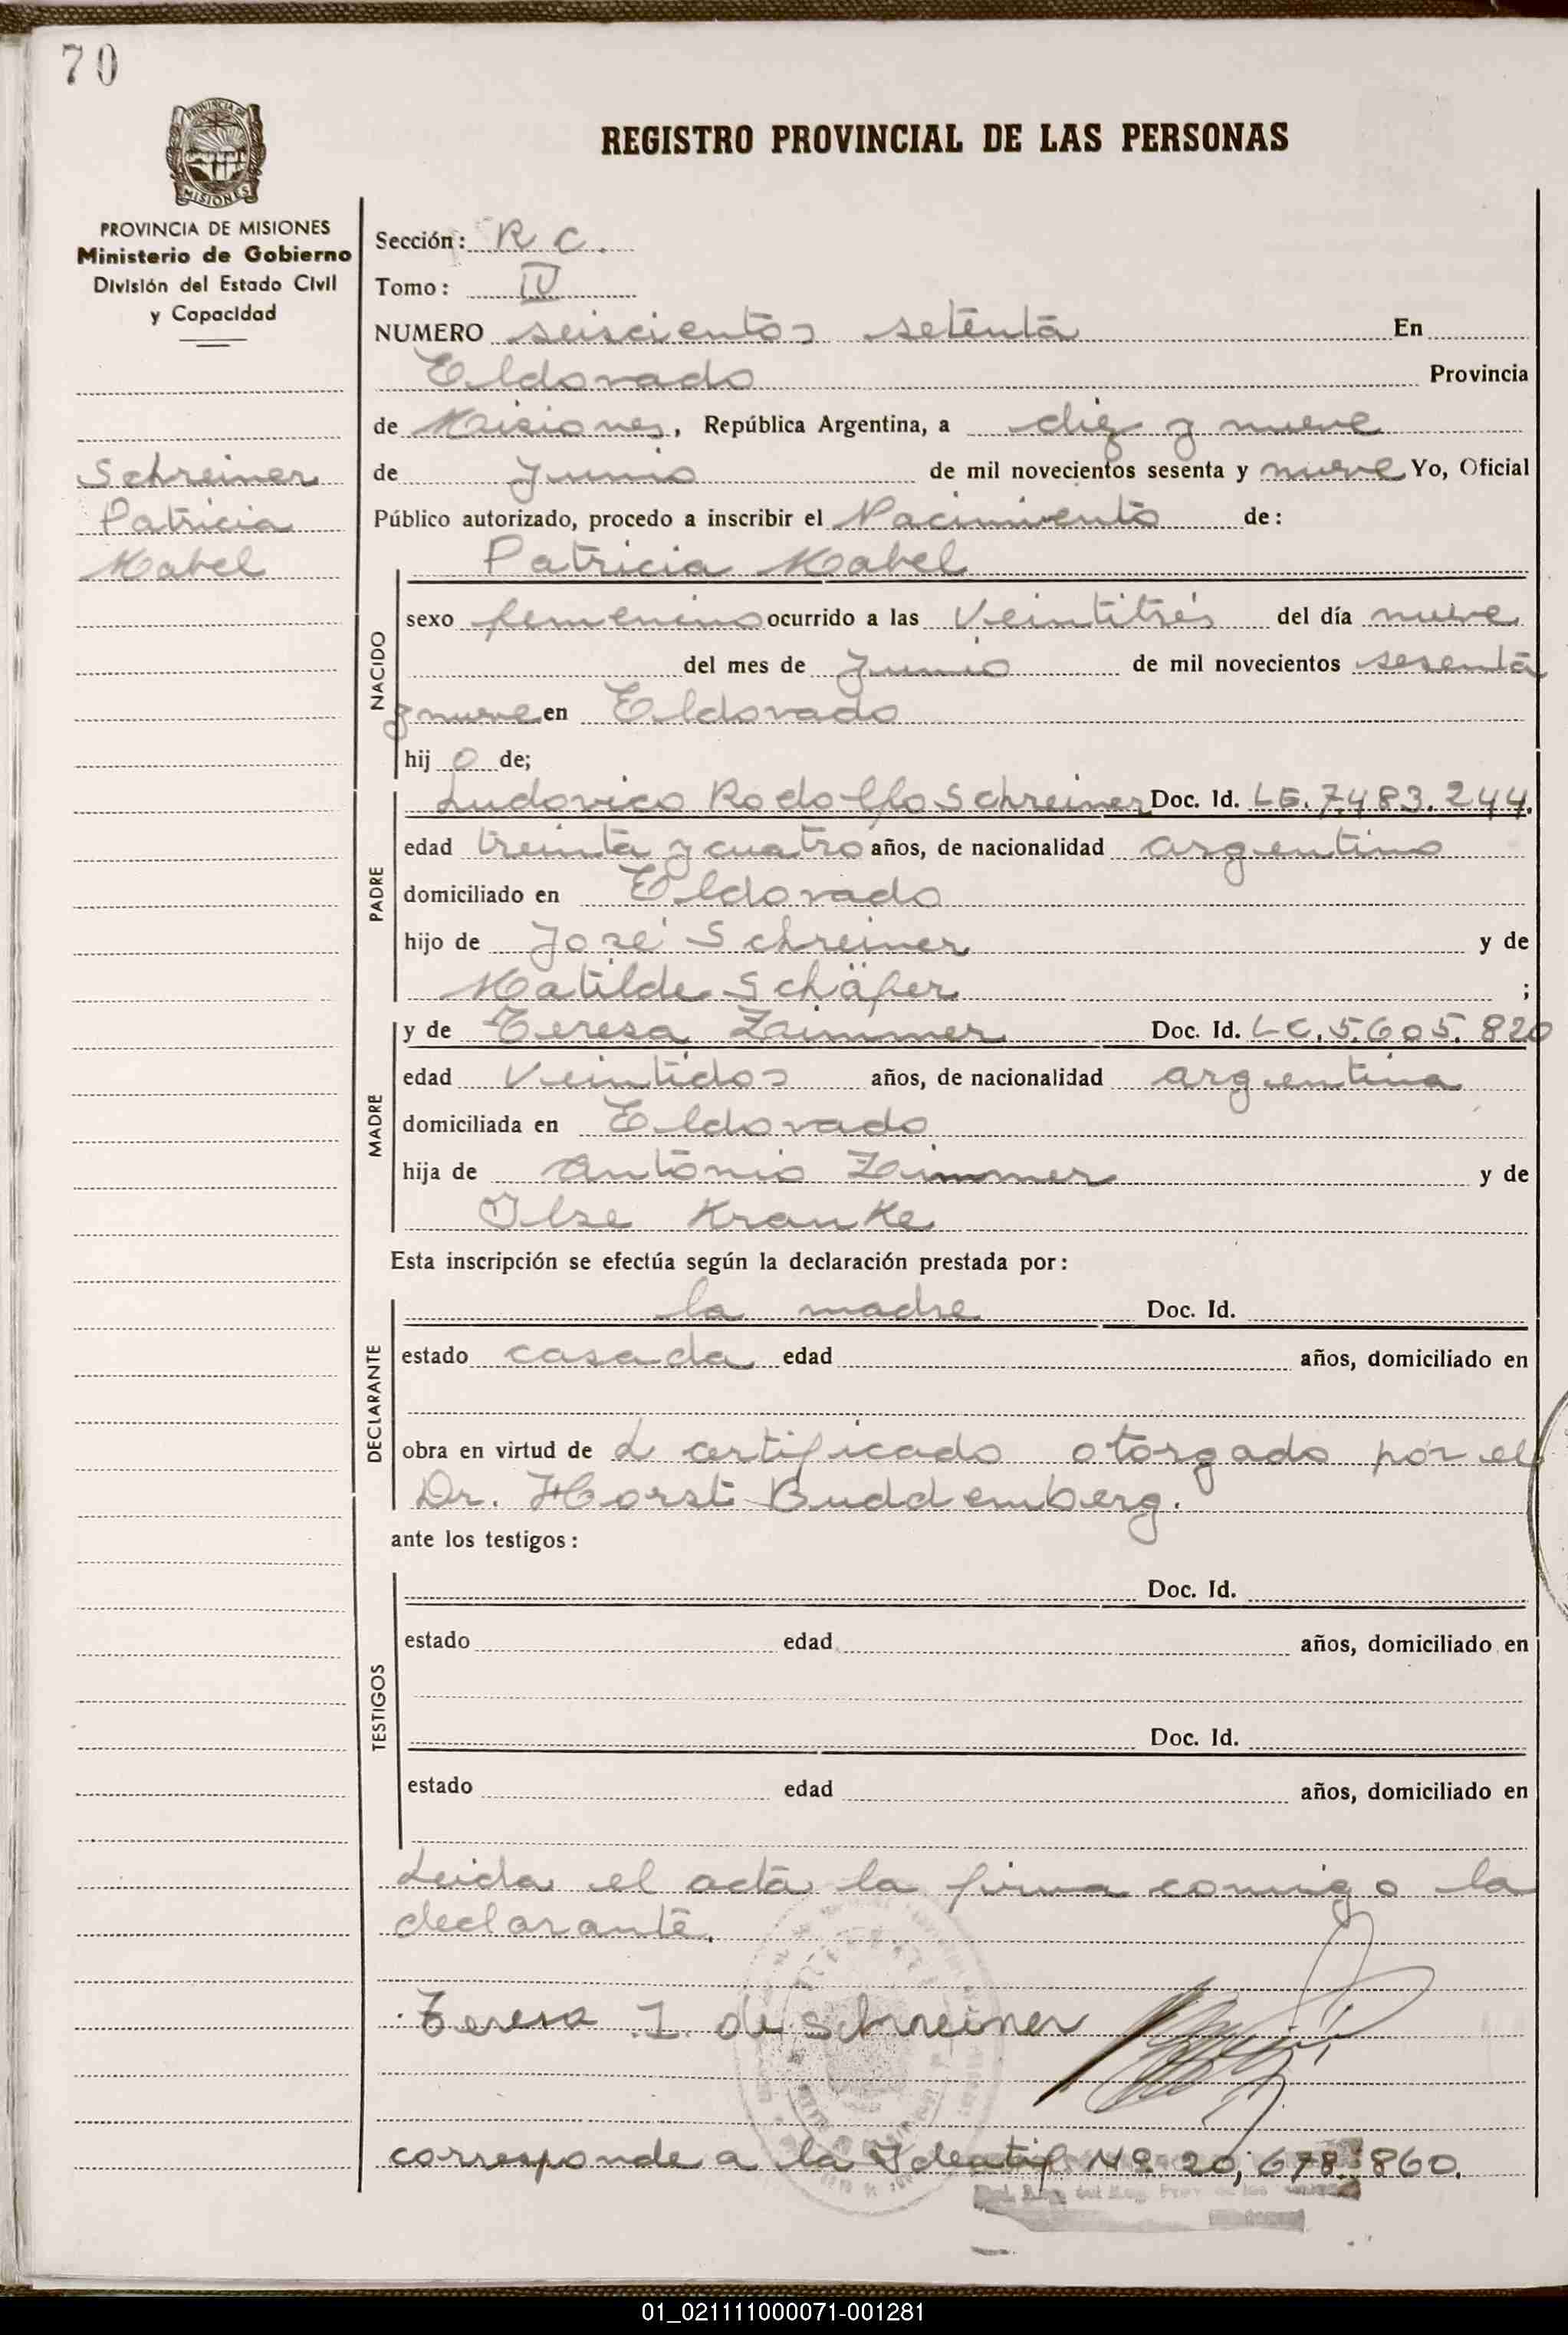 70
PROVINCIA DE
MISIONES
REGISTRO PROVINCIAL DE LAS PERSONAS
PROVINCIA DE MISIONES
Ministerio de Gobierno
División del Estado Civil
y Capacidad
Schreiner
Patricia
Mabel
Sección: R C.
Tomo: IV
NUMERO seiscientos setenta En
Eldorado Provincia
de Misiones, República Argentina, a diez y nueve
de Junio de mil novecientos sesenta y nueve Yo, Oficial
Público autorizado, procedo a inscribir el Nacimiento de:
Patricia Mabel
NACIDO
sexo femenino ocurrido a las Veintitrés del día nueve
del mes de Junio de mil novecientos sesenta
y nueve en Eldorado
hij o de;
PADRE
Ludovico Rodolfo Schreiner Doc. Id. LE. 7.483.244.
edad treinta y cuatro años, de nacionalidad argentino
domiciliado en Eldorado
hijo de José Schreiner y de
Matilde Schäfer ;
MADRE
y de Teresa Zimmer Doc. Id. LC. 5.605.820
edad Veintidos años, de nacionalidad argentina
domiciliada en Eldorado
hija de Antonio Zimmer y de
Ilse Kranke
Esta inscripción se efectúa según la declaración prestada por:
DECLARANTE
la madre Doc. Id.
estado casada edad años, domiciliado en
obra en virtud de L certificado otorgado por el
Dr. Horst Buddemberg.
ante los testigos:
TESTIGOS
Doc. Id.
estado edad años, domiciliado en
Doc. Id.
estado edad años, domiciliado en
Leida el acta la firma conmigo la
declarante.
Teresa Z. de Schreiner
corresponde a la Identif Nº 20,678.860.
01_021111000071-001281